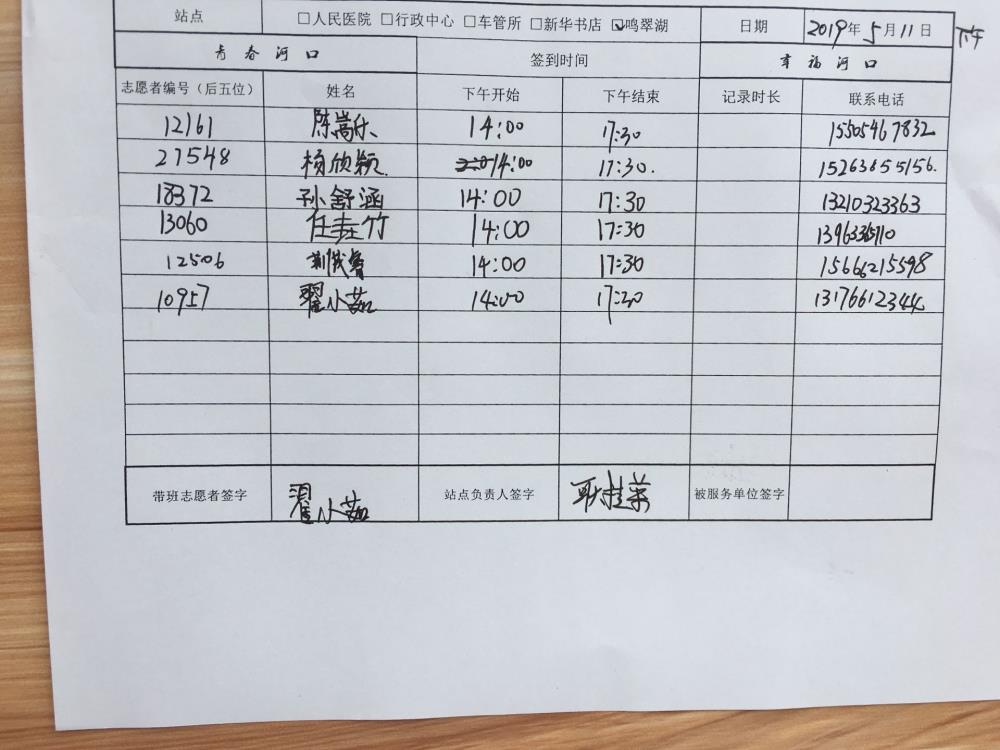 站点 □人民医院 □行政中心 □车管所 □新华书店 ☑鸣翠湖 日期 2019年5月11日 下午
青春河口 签到时间 幸福河口
志愿者编号（后五位） 姓名 下午开始 下午结束 记录时长 联系电话
12161 陈嵩乐 14:00 17:30 15505467832
27548 杨欣颖 14:00 17:30. 15263655156.
18372 孙舒涵 14:00 17:30 13210323363
13060 任圭竹 14:00 17:30
12506 14:00 17:30 15666215598
10957 翟小茹 14:00 17:30 13176612344
带班志愿者签字 翟小茹 站点负责人签字 耿桂荣 被服务单位签字